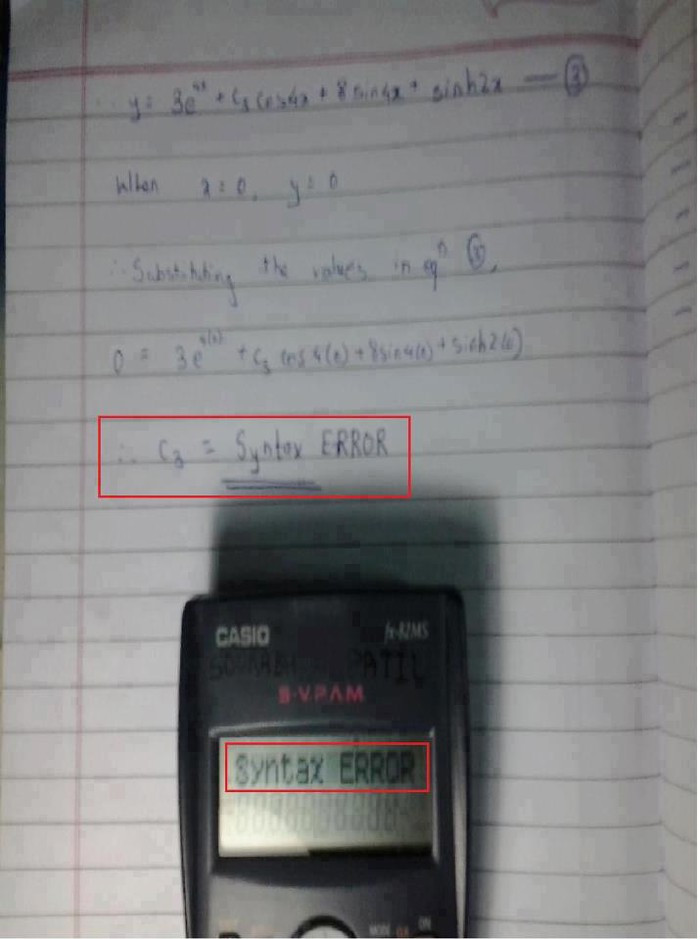 y = 3e⁴ˣ + C₃ cos4x + 8 sin4x + sinh2x — ③
When x = 0, y = 0
∴ Substituting the values in eqⁿ ③,
0 = 3e⁴⁽⁰⁾ + C₃ cos4(0) + 8sin4(0) + sinh2(0)
∴ C₃ = Syntax ERROR
CASIO fx-82MS
PATIL
S-V.P.A.M.
Syntax ERROR
MODE ON